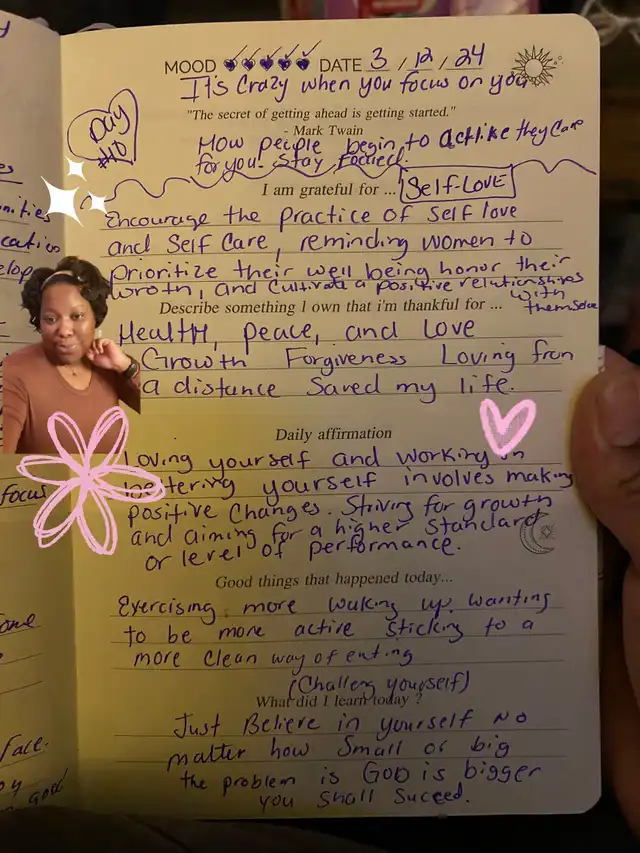 MOOD DATE 3 / 12 / 24
It's Crazy when you focus on you
"The secret of getting ahead is getting started."
- Mark Twain
Day #40
How people begin to act like they care
for you. Stay Focied.
I am grateful for ... Self-LOVE
Encourage the practice of self love
and Self Care, reminding women to
prioritize their well being honor their
wroth, and Cultivate a positive relationships
with themselve
Describe something I own that i'm thankful for ...
Health, peace, and love
Growth Forgiveness Loving from
a distance Saved my life.
Daily affirmation
Loving yourself and working on
bettering yourself involves making
positive Changes. Striving for growth
and aiming for a higher Standard
or level of performance.
Good things that happened today...
Exercising more waking up. wanting
to be more active Sticking to a
more Clean way of eating
(Challeng yourself)
What did I learn today ?
Just Believe in yourself No
matter how Small or big
the problem is GOD is bigger
you Shall Succeed.
focus
face.
good